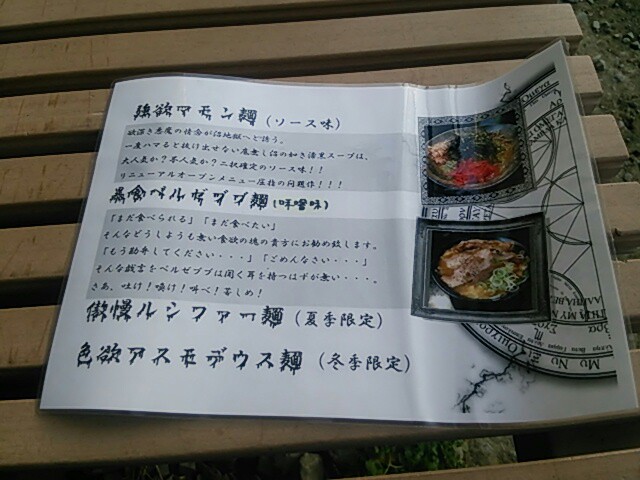 強欲マモン麺（ソース味）
欲深き悪魔の情念が沼地獄へと誘う。
一度ハマると抜け出せない底無し沼の如き漆黒スープは、
大人気か？不人気か？二択確定のソース味！！
リニューアルオープンメニュー屈指の問題作！！！
暴食ベルゼブブ麺（味噌味）
「まだ食べられる」「まだ食べたい」
そんなどうしようも無い食欲の塊の貴方にお勧め致します。
「もう勘弁してください・・・」「ごめんなさい・・・」
そんな戯言をベルゼブブは聞く耳を持つはずが無い・・・。
さあ、吐け！喚け！叫べ！苦しめ！
傲慢ルシファー麺（夏季限定）
色欲アスモデウス麺（冬季限定）